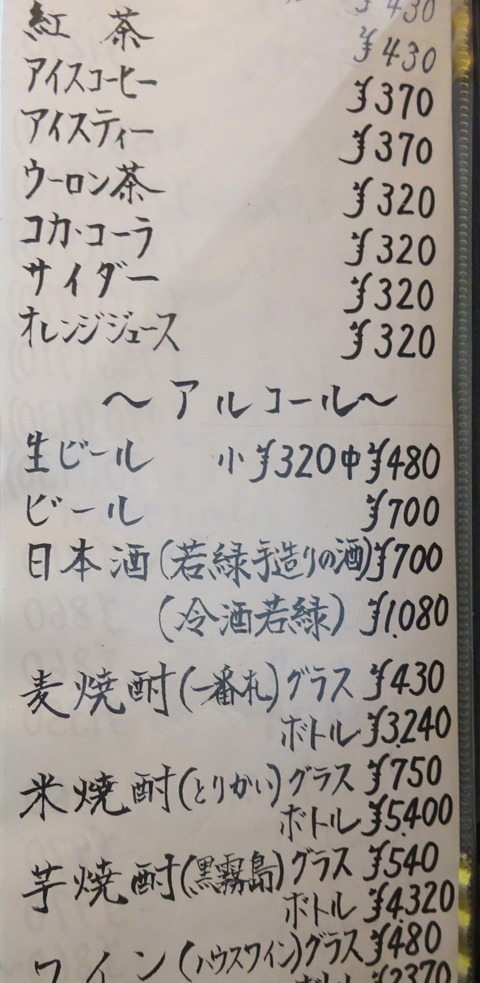 ¥430
紅茶 ¥430
アイスコーヒー ¥370
アイスティー ¥370
ウーロン茶 ¥320
コカ・コーラ ¥320
サイダー ¥320
オレンジジュース ¥320
～アルコール～
生ビール 小¥320中¥480
ビール ¥700
日本酒(若緑手造りの酒)¥700
(冷酒若緑) ¥1,080
麦焼酎(一番札)グラス ¥430
ボトル ¥3,240
米焼酎(とりかい)グラス ¥750
ボトル ¥5,400
芋焼酎(黒霧島)グラス ¥540
ボトル ¥4,320
ワイン(ハウスワイン)グラス ¥480
ボトル ¥2,370